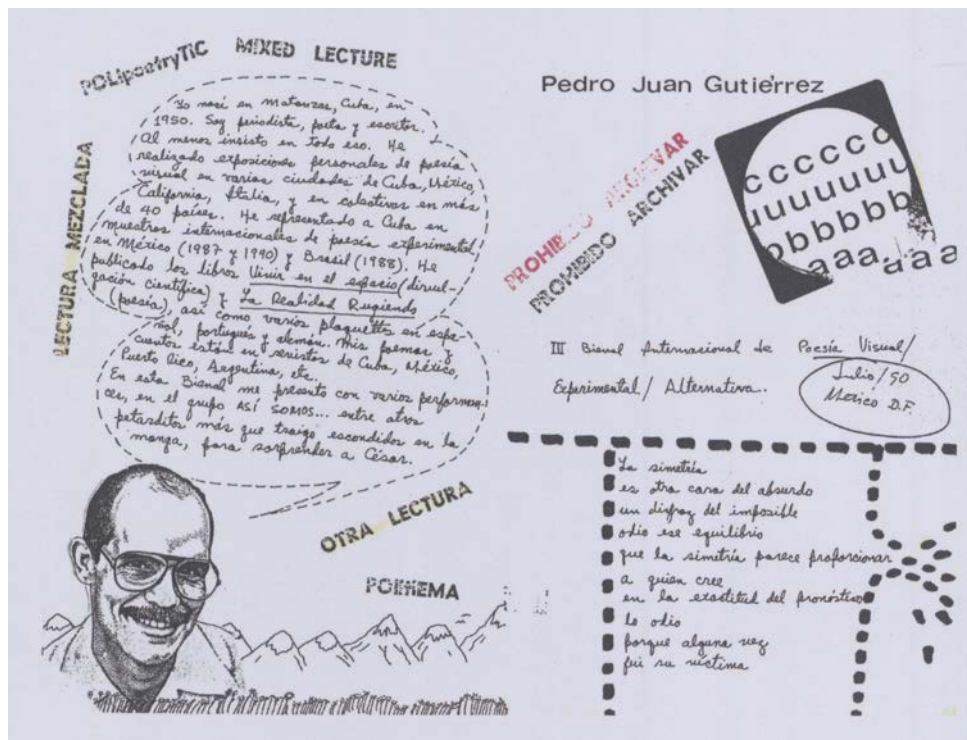 POLipoetryTIC MIXED LECTURE
LECTURA MEZCLADA
Yo nací en Matanzas, Cuba, en
1950. Soy periodista, poeta y escritor.
Al menos insisto en todo eso. He
realizado exposiciones personales de poesía
visual en varias ciudades de Cuba, México,
California, Italia, y en colectivas en más
de 40 países. He representado a Cuba en
muestras internacionales de poesía experimental,
en México (1987 y 1990) y Brasil (1988). He
publicado los libros Vivir en el espacio (divul-
gación científica) y La Realidad Rugiendo
(poesía), así como varios plaquetts en espa-
ñol, portugués y alemán. Mis poemas y
cuentos están en revistas de Cuba, México,
Puerto Rico, Argentina, etc.
En esta Bienal me presento con varios performan-
ces, en el grupo ASÍ SOMOS... entre otros
petarditos más que traigo escondidos en la
manga, para sorprender a César.
OTRA LECTURA
POEMEMA
Pedro Juan Gutiérrez
PROHIBIDO ARCHIVAR
PROHIBIDO ARCHIVAR
cccccc
uuuuuuu
bbbbbb
aaa.aaa
III Bienal Internacional de Poesía Visual/
Experimental/Alternativa.
Julio/90
México D.F.
La simetría
es otra cara del absurdo
un disfraz del imposible
odio ese equilibrio
que la simetría parece proporcionar
a quien cree
en la exactitud del pronóstico
lo odio
porque alguna vez
fui su víctima